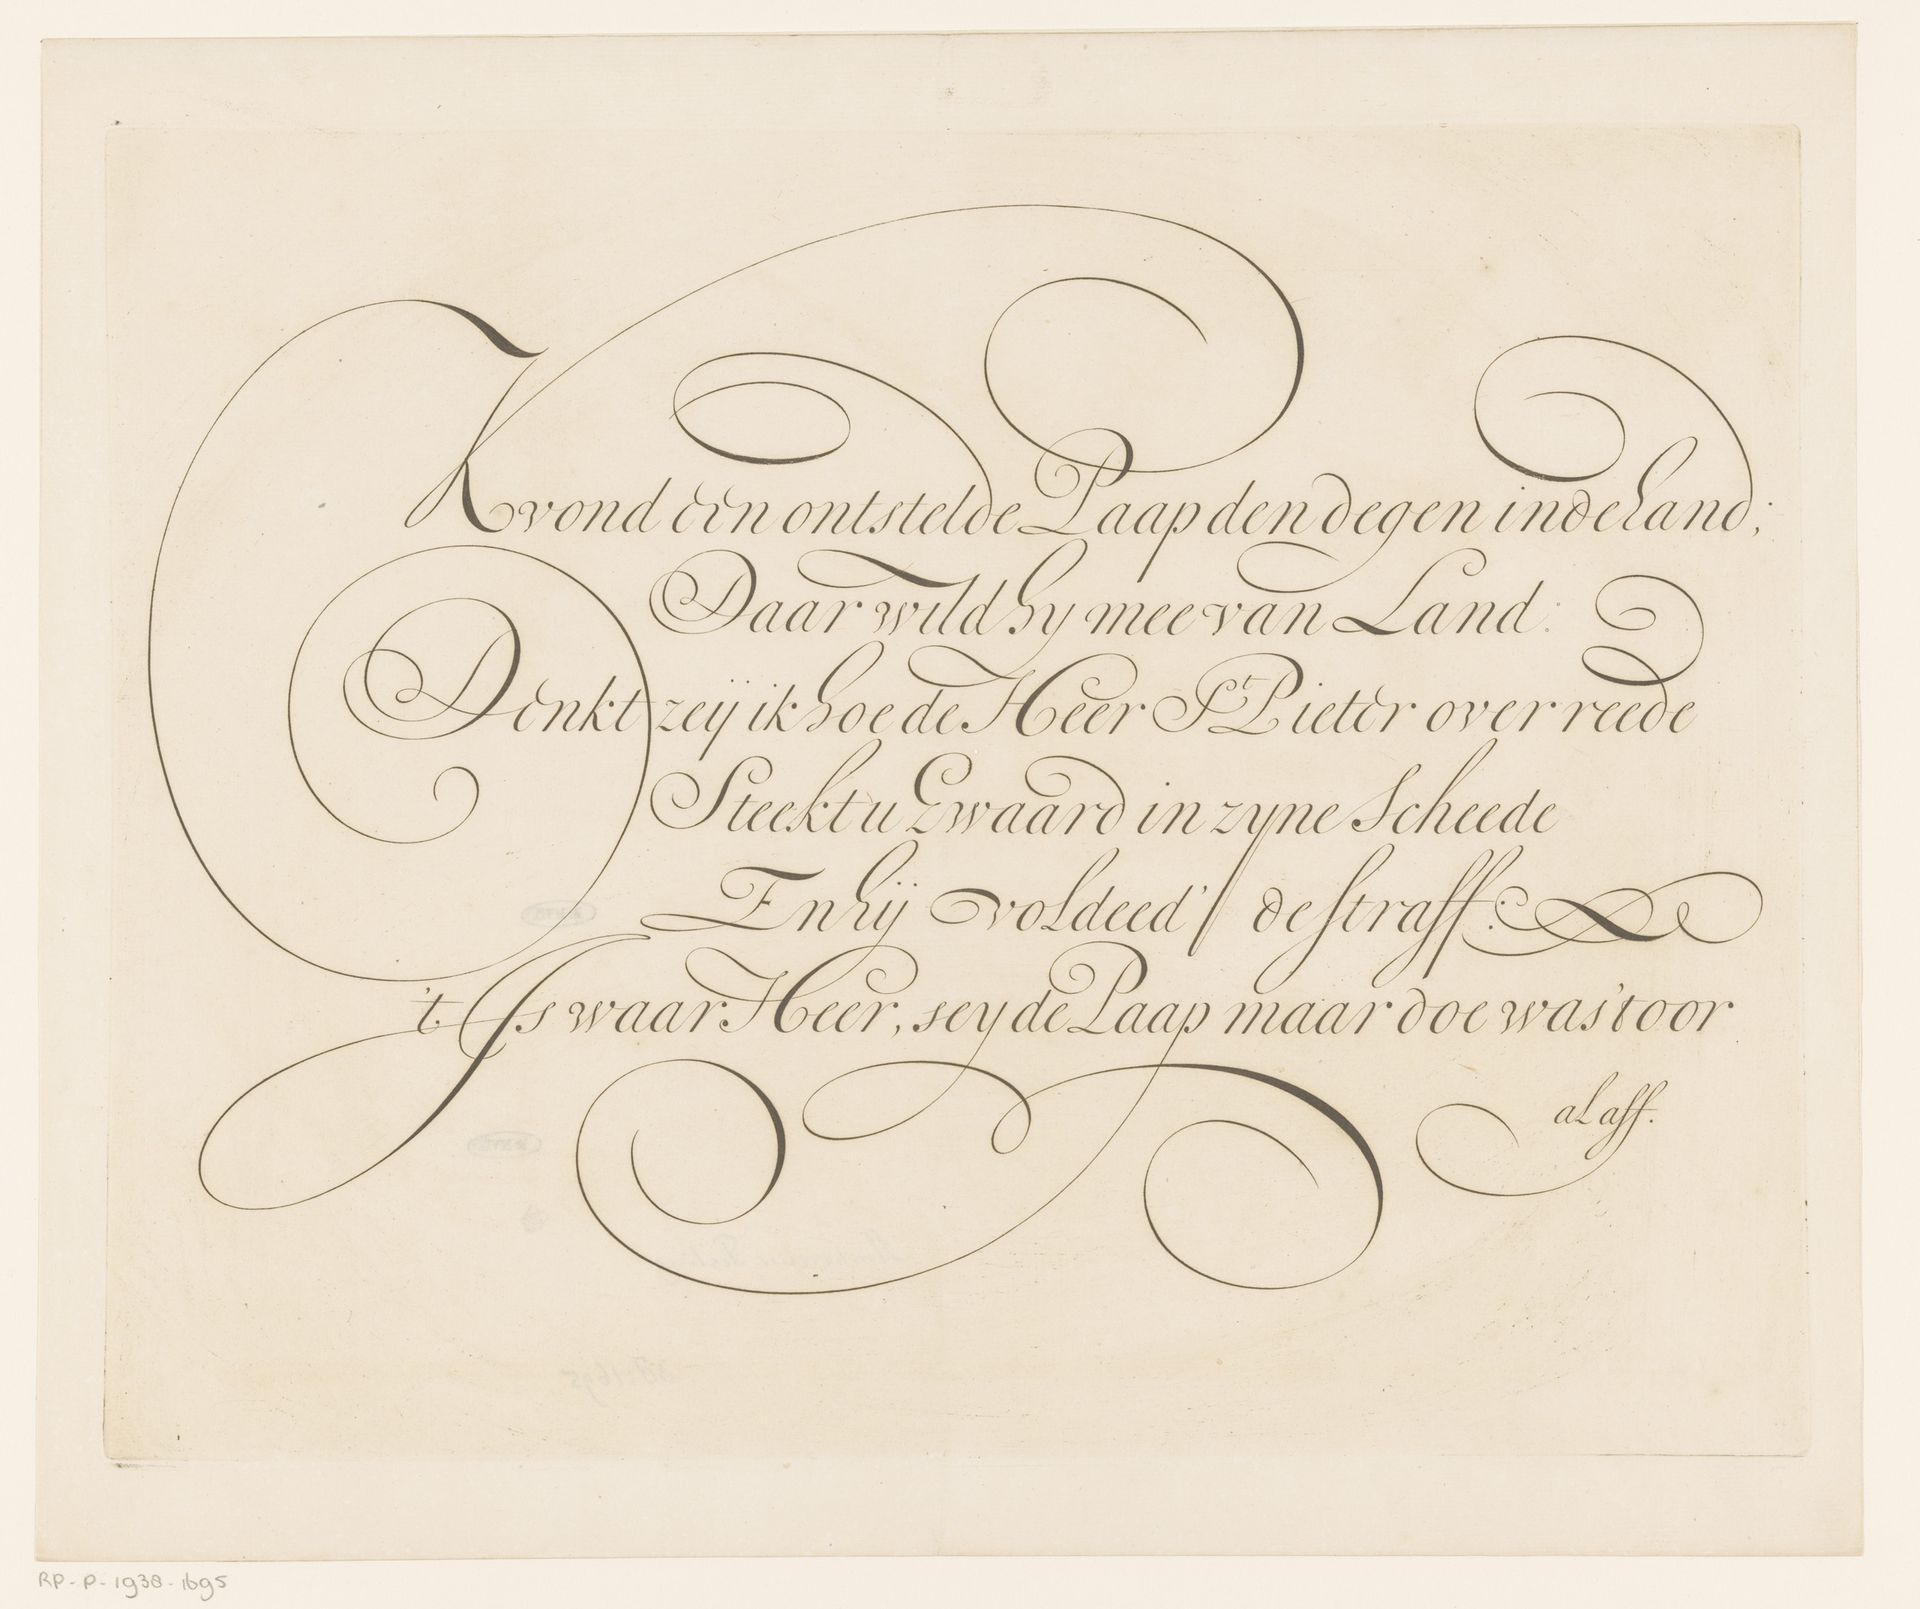 K vond een ontstelde Paap den degen in de hand;
Daar wild hy mee van Land:
Denkt zeij ik hoe de Heer St Pieter overreede
Steekt u Zwaard in zyne Scheede
En hij voldeed' de straff:
't Is waar Heer, sey de Paap maar doe was 't oor
al aff.
RP-P-1938-1695